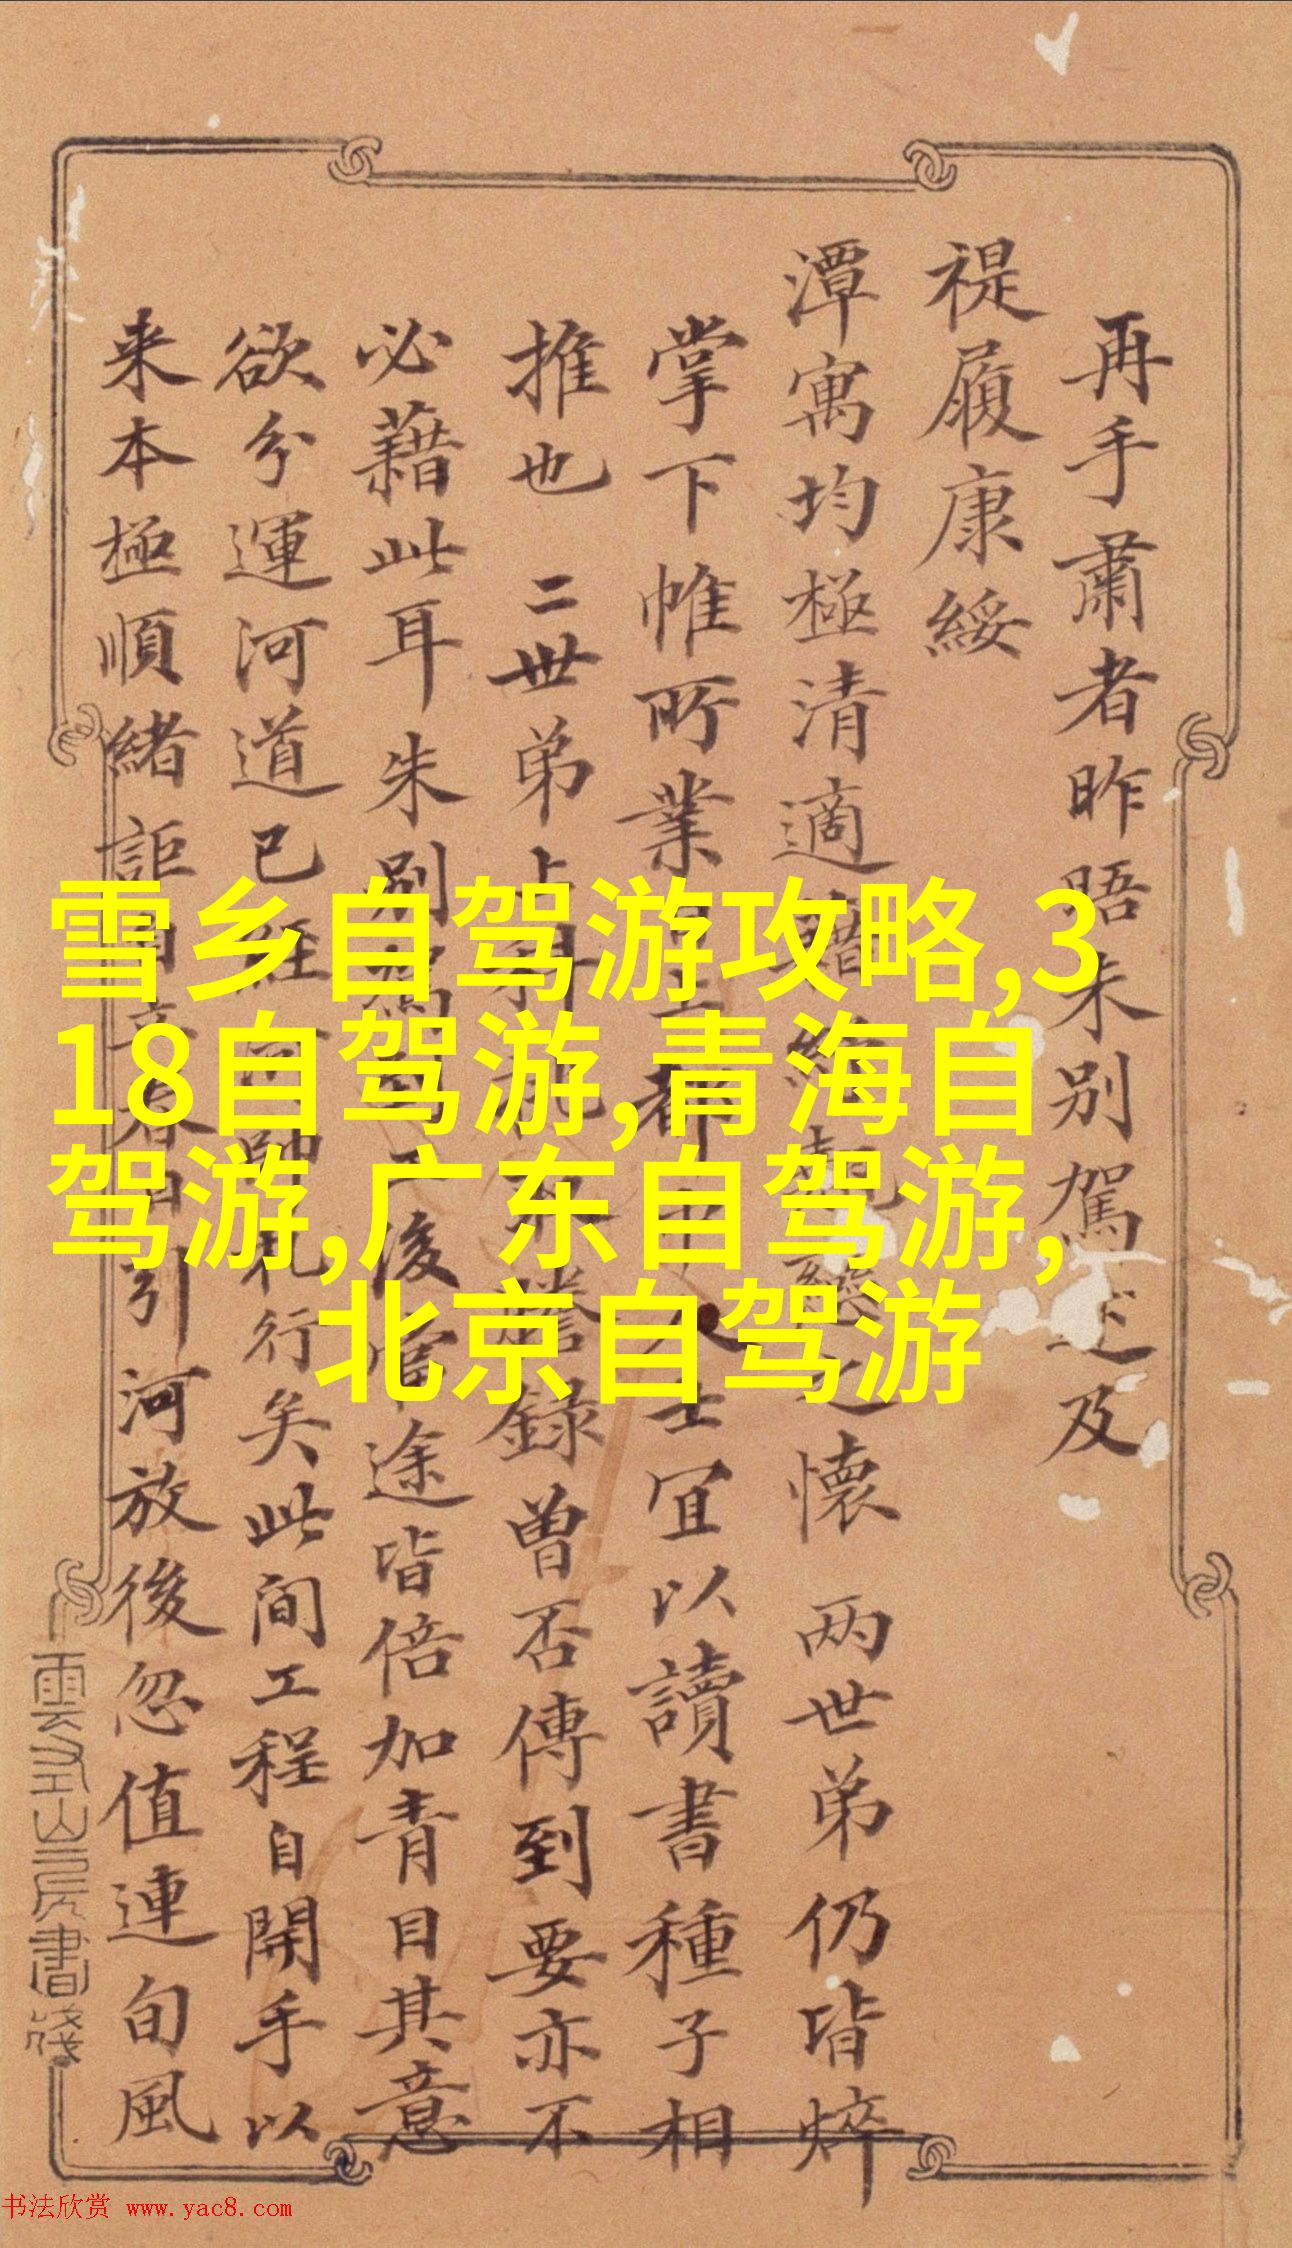 再手肅者昨晤朱别駕述及
禔履康綏
潭寓均極清適 懷 两世弟仍皆焠
掌下帷所業 士宜以讀書種子相
推也 二世弟 謄錄曾否傳到要亦不
必藉此耳朱别駕 後 途皆倍加青目其意
欲分運河道已經 札行矣此间工程自開手以
来本極順緒詎 引河放後忽值連旬風
雪乡自驾游攻略,3
18自驾游,青海自
驾游,广东自驾游,
北京自驾游
書箋
书法欣赏 www.yac8.com